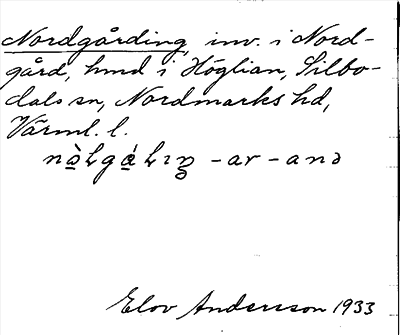 Nordgårding, inv. i Nord-
gård, hmd i Höglian, Silbo-
dals sn, Nordmarks hd,
Värml. l.
-ar -anə
Elov Andersson 1933